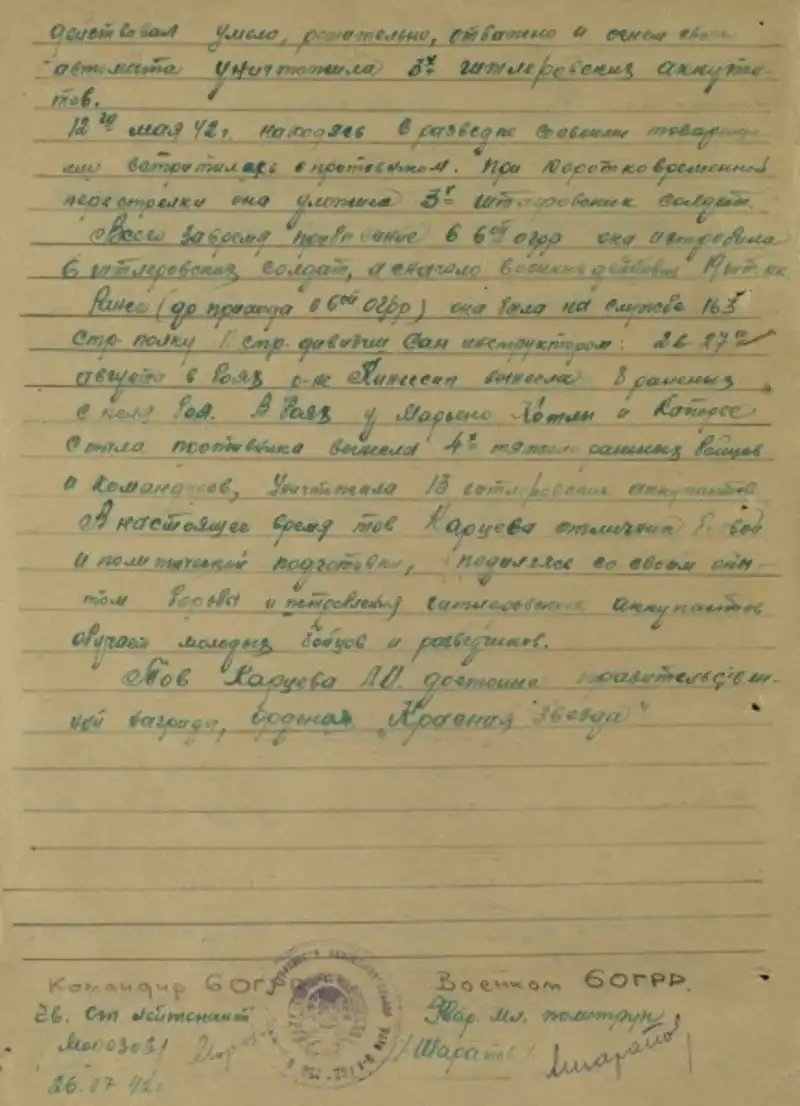 действовал умело, решительно, отважно и огнем свое
автомата уничтожила 3х гитлеровских аккупан-
тов.
12го мая 42 г. находясь в разведке со своими товарища
ми встретилась с противником. При коротковременной
перестрелки она уложила 3х гитлеровских солдат.
Всего за время пребывание в 6ой огрр она истребила
6 гитлеровских солдат, а сначало военных действий 19
Ранее (до прихода в 6ой ОГРР) она была на службе 163
стр. полку 1 стр. дивизии Сан инструктором: 26-27го
августа в боях р-не вынесла 8 раненых
с поля боя. В боях у Марьено, Хотлы и
с тыла противника вынесла 4х тяжело раненых бойцов
и командиров, Уничтожила 13 гитлеровских аккупантов
В настоящее время тов Карцева отличник боевой
и политической подготовки, поделяясь со своим опы-
том борьбы и истребления гитлеровских аккупантов
обучает молодых бойцов и разведчиков.
Тов Карцева Л.О. достойна правительствен-
ной награда, ордена „Красная Звезда"
Командир 6ОГРР Военком 6ОГРР.
Гв. Ст лейтенант Мл. политрук
/Морозов/ /Шарапов/
26.07 42г